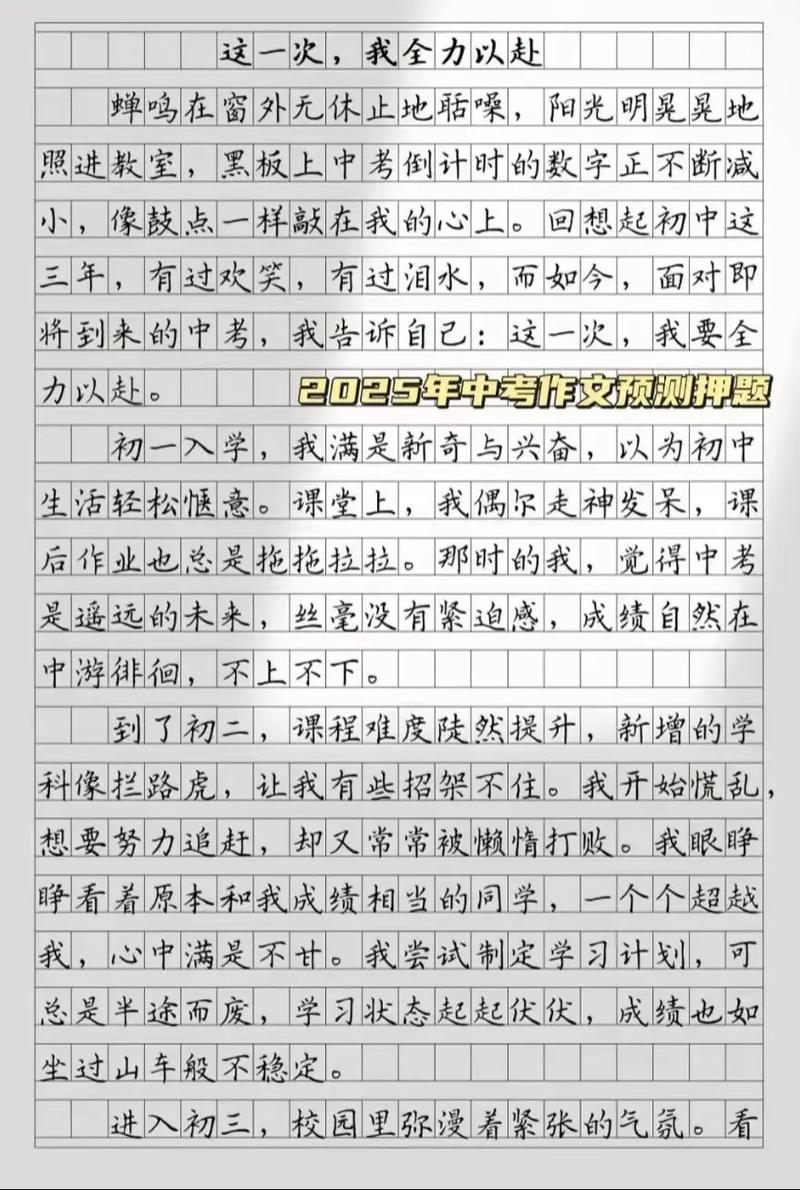 这一次，我全力以赴
蝉鸣在窗外无休止地聒噪，阳光明晃晃地
照进教室，黑板上中考倒计时的数字正不断减
小，像鼓点一样敲在我的心上。回想起初中这
三年，有过欢笑，有过泪水，而如今，面对即
将到来的中考，我告诉自己：这一次，我要全
力以赴。
2025年中考作文预测押题
初一入学，我满是新奇与兴奋，以为初中
生活轻松惬意。课堂上，我偶尔走神发呆，课
后作业也总是拖拖拉拉。那时的我，觉得中考
是遥远的未来，丝毫没有紧迫感，成绩自然在
中游徘徊，不上不下。
到了初二，课程难度陡然提升，新增的学
科像拦路虎，让我有些招架不住。我开始慌乱，
想要努力追赶，却又常常被懒惰打败。我眼睁
睁看着原本和我成绩相当的同学，一个个超越
我，心中满是不甘。我尝试制定学习计划，可
总是半途而废，学习状态起起伏伏，成绩也如
坐过山车般不稳定。
进入初三，校园里弥漫着紧张的气氛。看